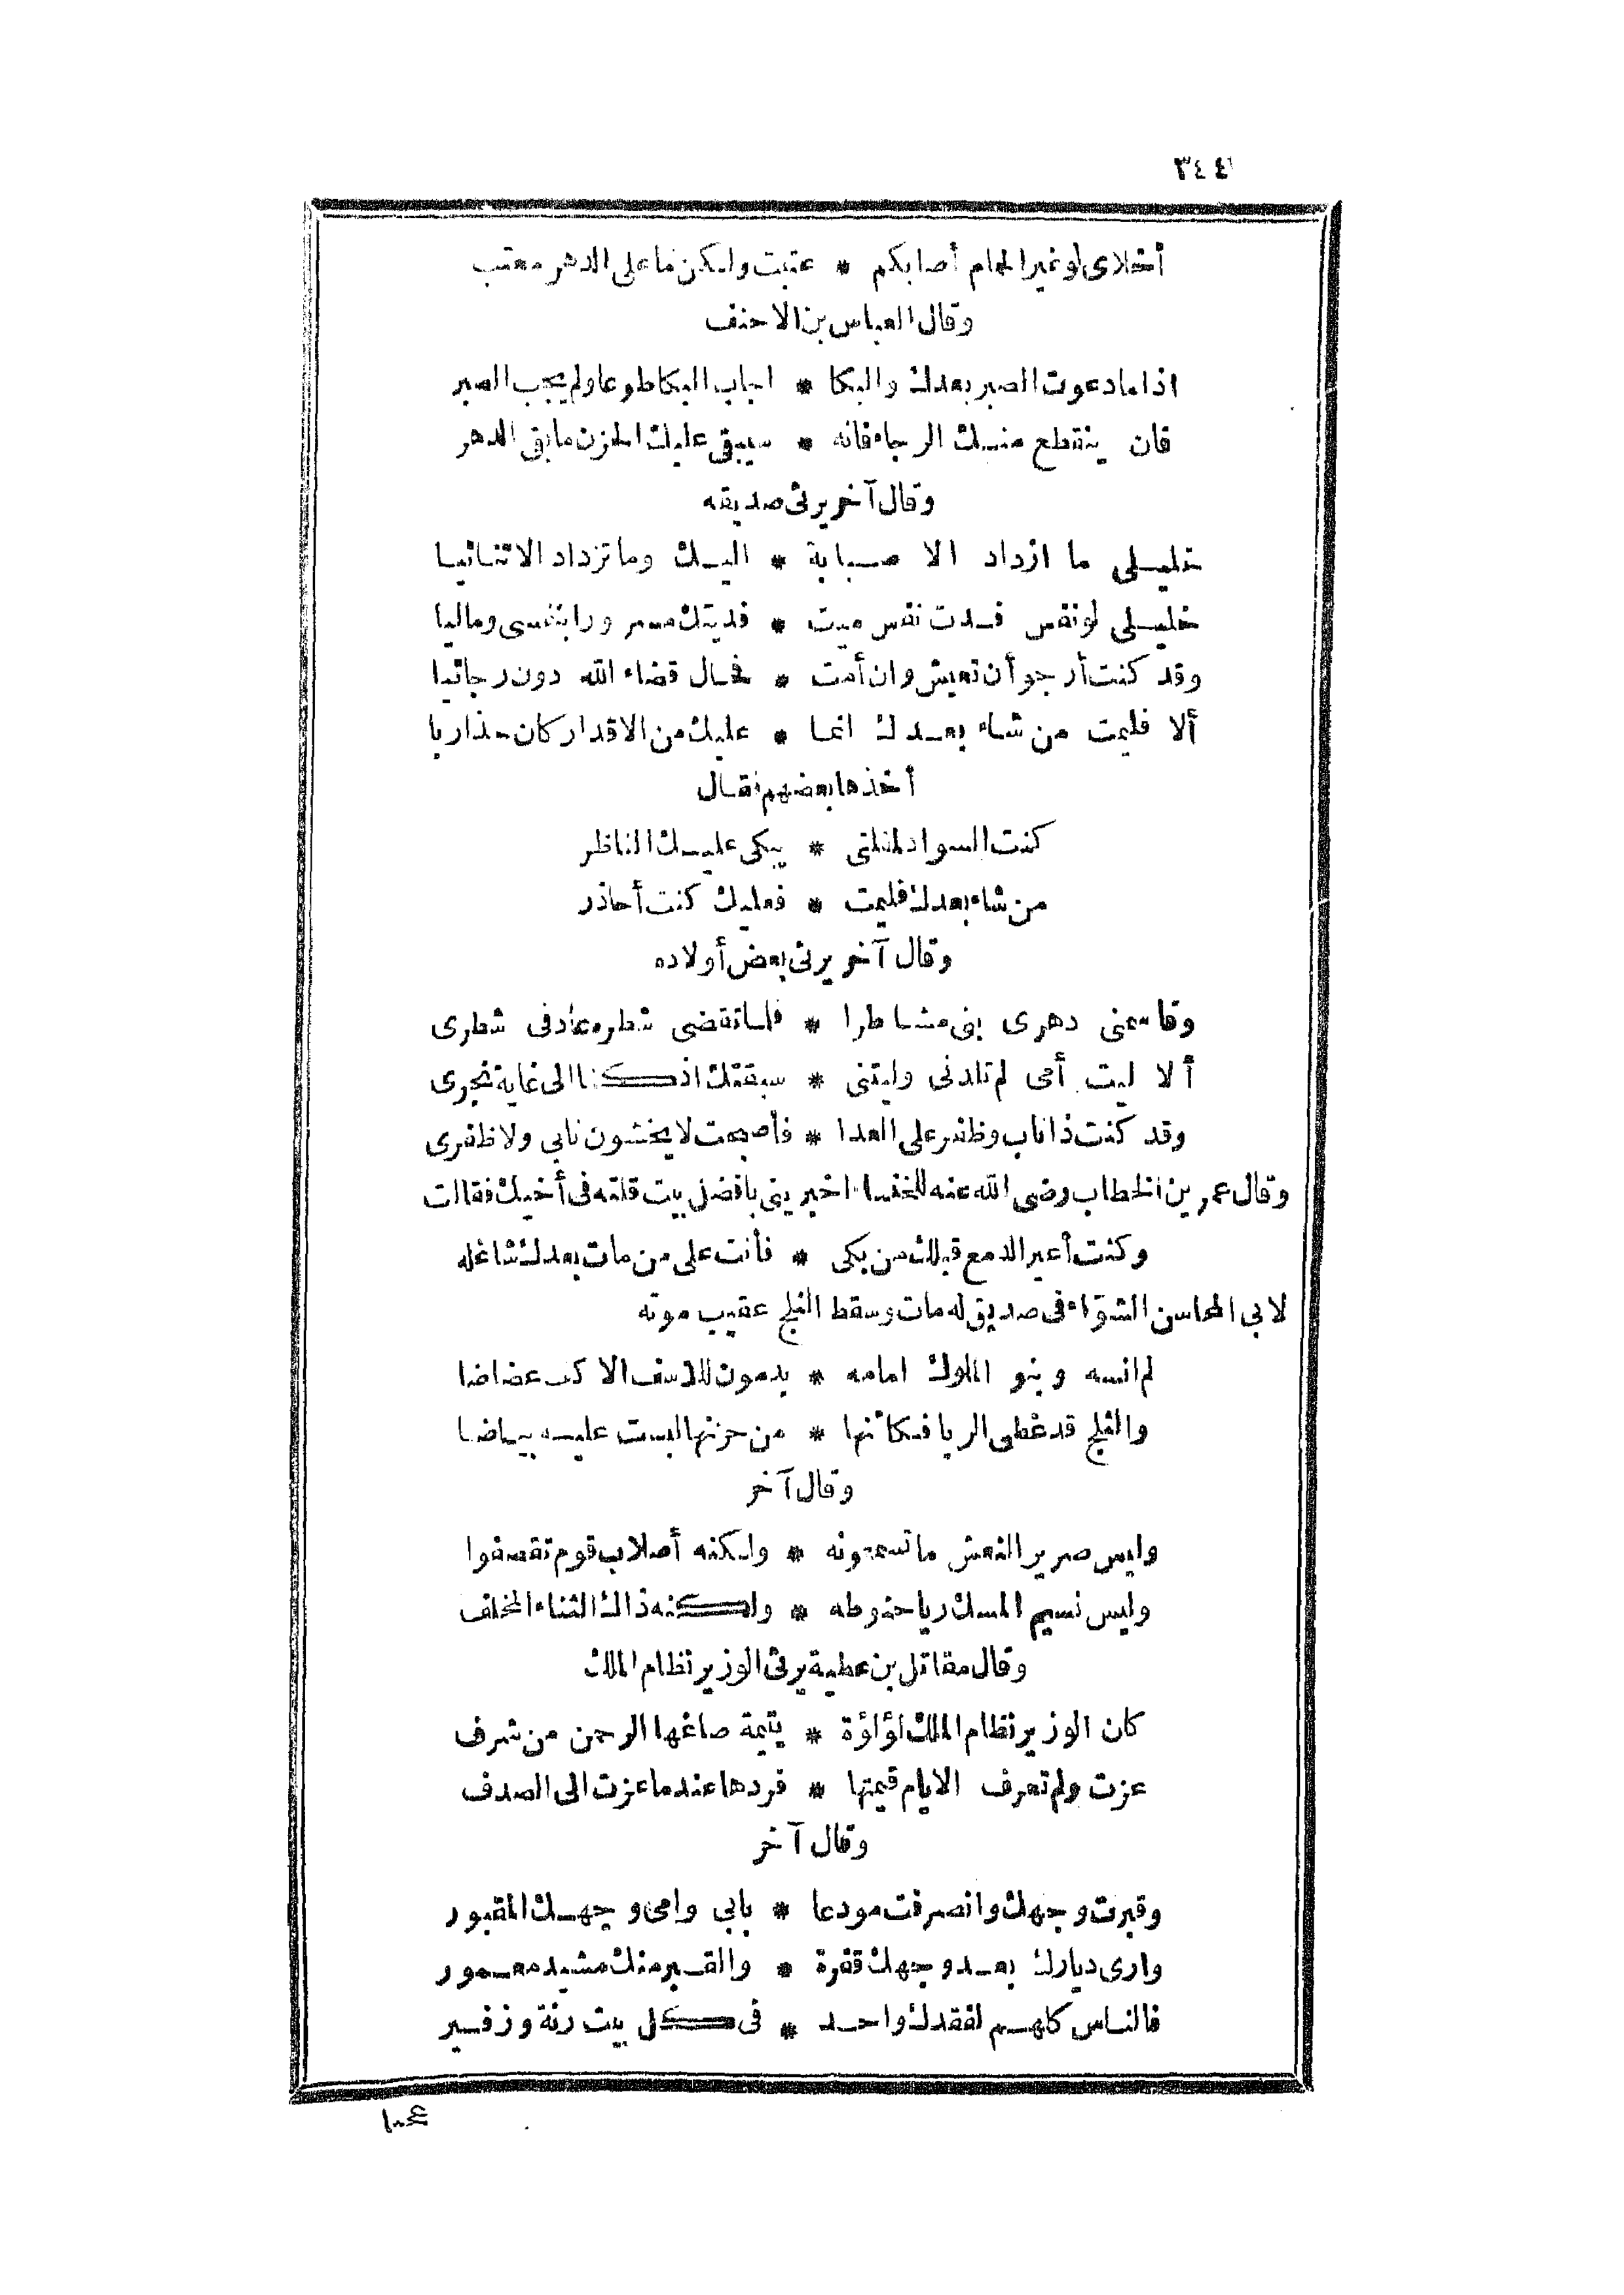 ٣٤٤
أخلاى لو غير الحمام أصابكم * عتبت ولكن ما على الدهر معتب
وقال العباس بن الاحنف
اذا ما دعوت الصبر بعدك والبكا * اجاب البكا طوعا ولم يجب الصبر
فان ينقطع منك الرجاء فانه * سيبقى عليك الحزن ما بقى الدهر
وقال آخر يرثى صديقه
خليلى ما ازداد الا صبابة * اليك وما تزداد الا تنائيا
خليلى لو نفس فدت نفس ميت * فديتك مسرورا بنفسى وماليا
وقد كنت أرجو أن تعيش وان أمت * فحال قضاء الله دون رجائيا
ألا فليمت من شاء بعدك انما * عليك من الاقدار كان حذاريا
أخذها بعضهم فقال
كنت السواد لمقلتى * يبكى عليك الناظر
من شاء بعدك فليمت * فعليك كنت أحاذر
وقال آخر يرثى بعض أولاده
وقاسمنى دهرى بنى مشاطرا * فلما تقضى شطره عاد فى شطرى
ألا ليت أمى لم تلدنى وليتنى * سبقتك اذ كنا الى غاية نجرى
وقد كنت ذا ناب وظفر على العدا * فأصبحت لا يخشون نابى ولا ظفرى
وقال عمر بن الخطاب رضى الله عنه للخنساء اخبرينى بافضل بيت قلته فى أخيك فقالت
وكنت أعير الدمع قبلك من بكى * فأنت على من مات بعدك شاغله
لابى المحاسن الشوّاء فى صديق له مات وسقط الثلج عقيب موته
لم انسه وبنو الملوك امامه * يدمون للاسف الاكف عضاضا
والثلج قد غطى الربا فكأنها * من حزنها لبست عليه بياضا
وقال آخر
وليس صرير النعش ما تسمعونه * ولكنه أصلاب قوم تقصفوا
وليس نسيم المسك ريا حنوطه * ولكنه ذاك الثناء المخلف
وقال مقاتل بن عطية يرثى الوزير نظام الملك
كان الوزير نظام الملك لؤلؤة * يتيمة صاغها الرحمن من شرف
عزت ولم تعرف الايام قيمتها * فردها عندما عزت الى الصدف
وقال آخر
وقبرت وجهك وانصرفت مودعا * بابى وامى وجهك المقبور
وارى ديارك بعد وجهك قفرة * والقبر منك مشيد معمور
فالناس كلهم لفقدك واحد * فى كل بيت رنة وزفير